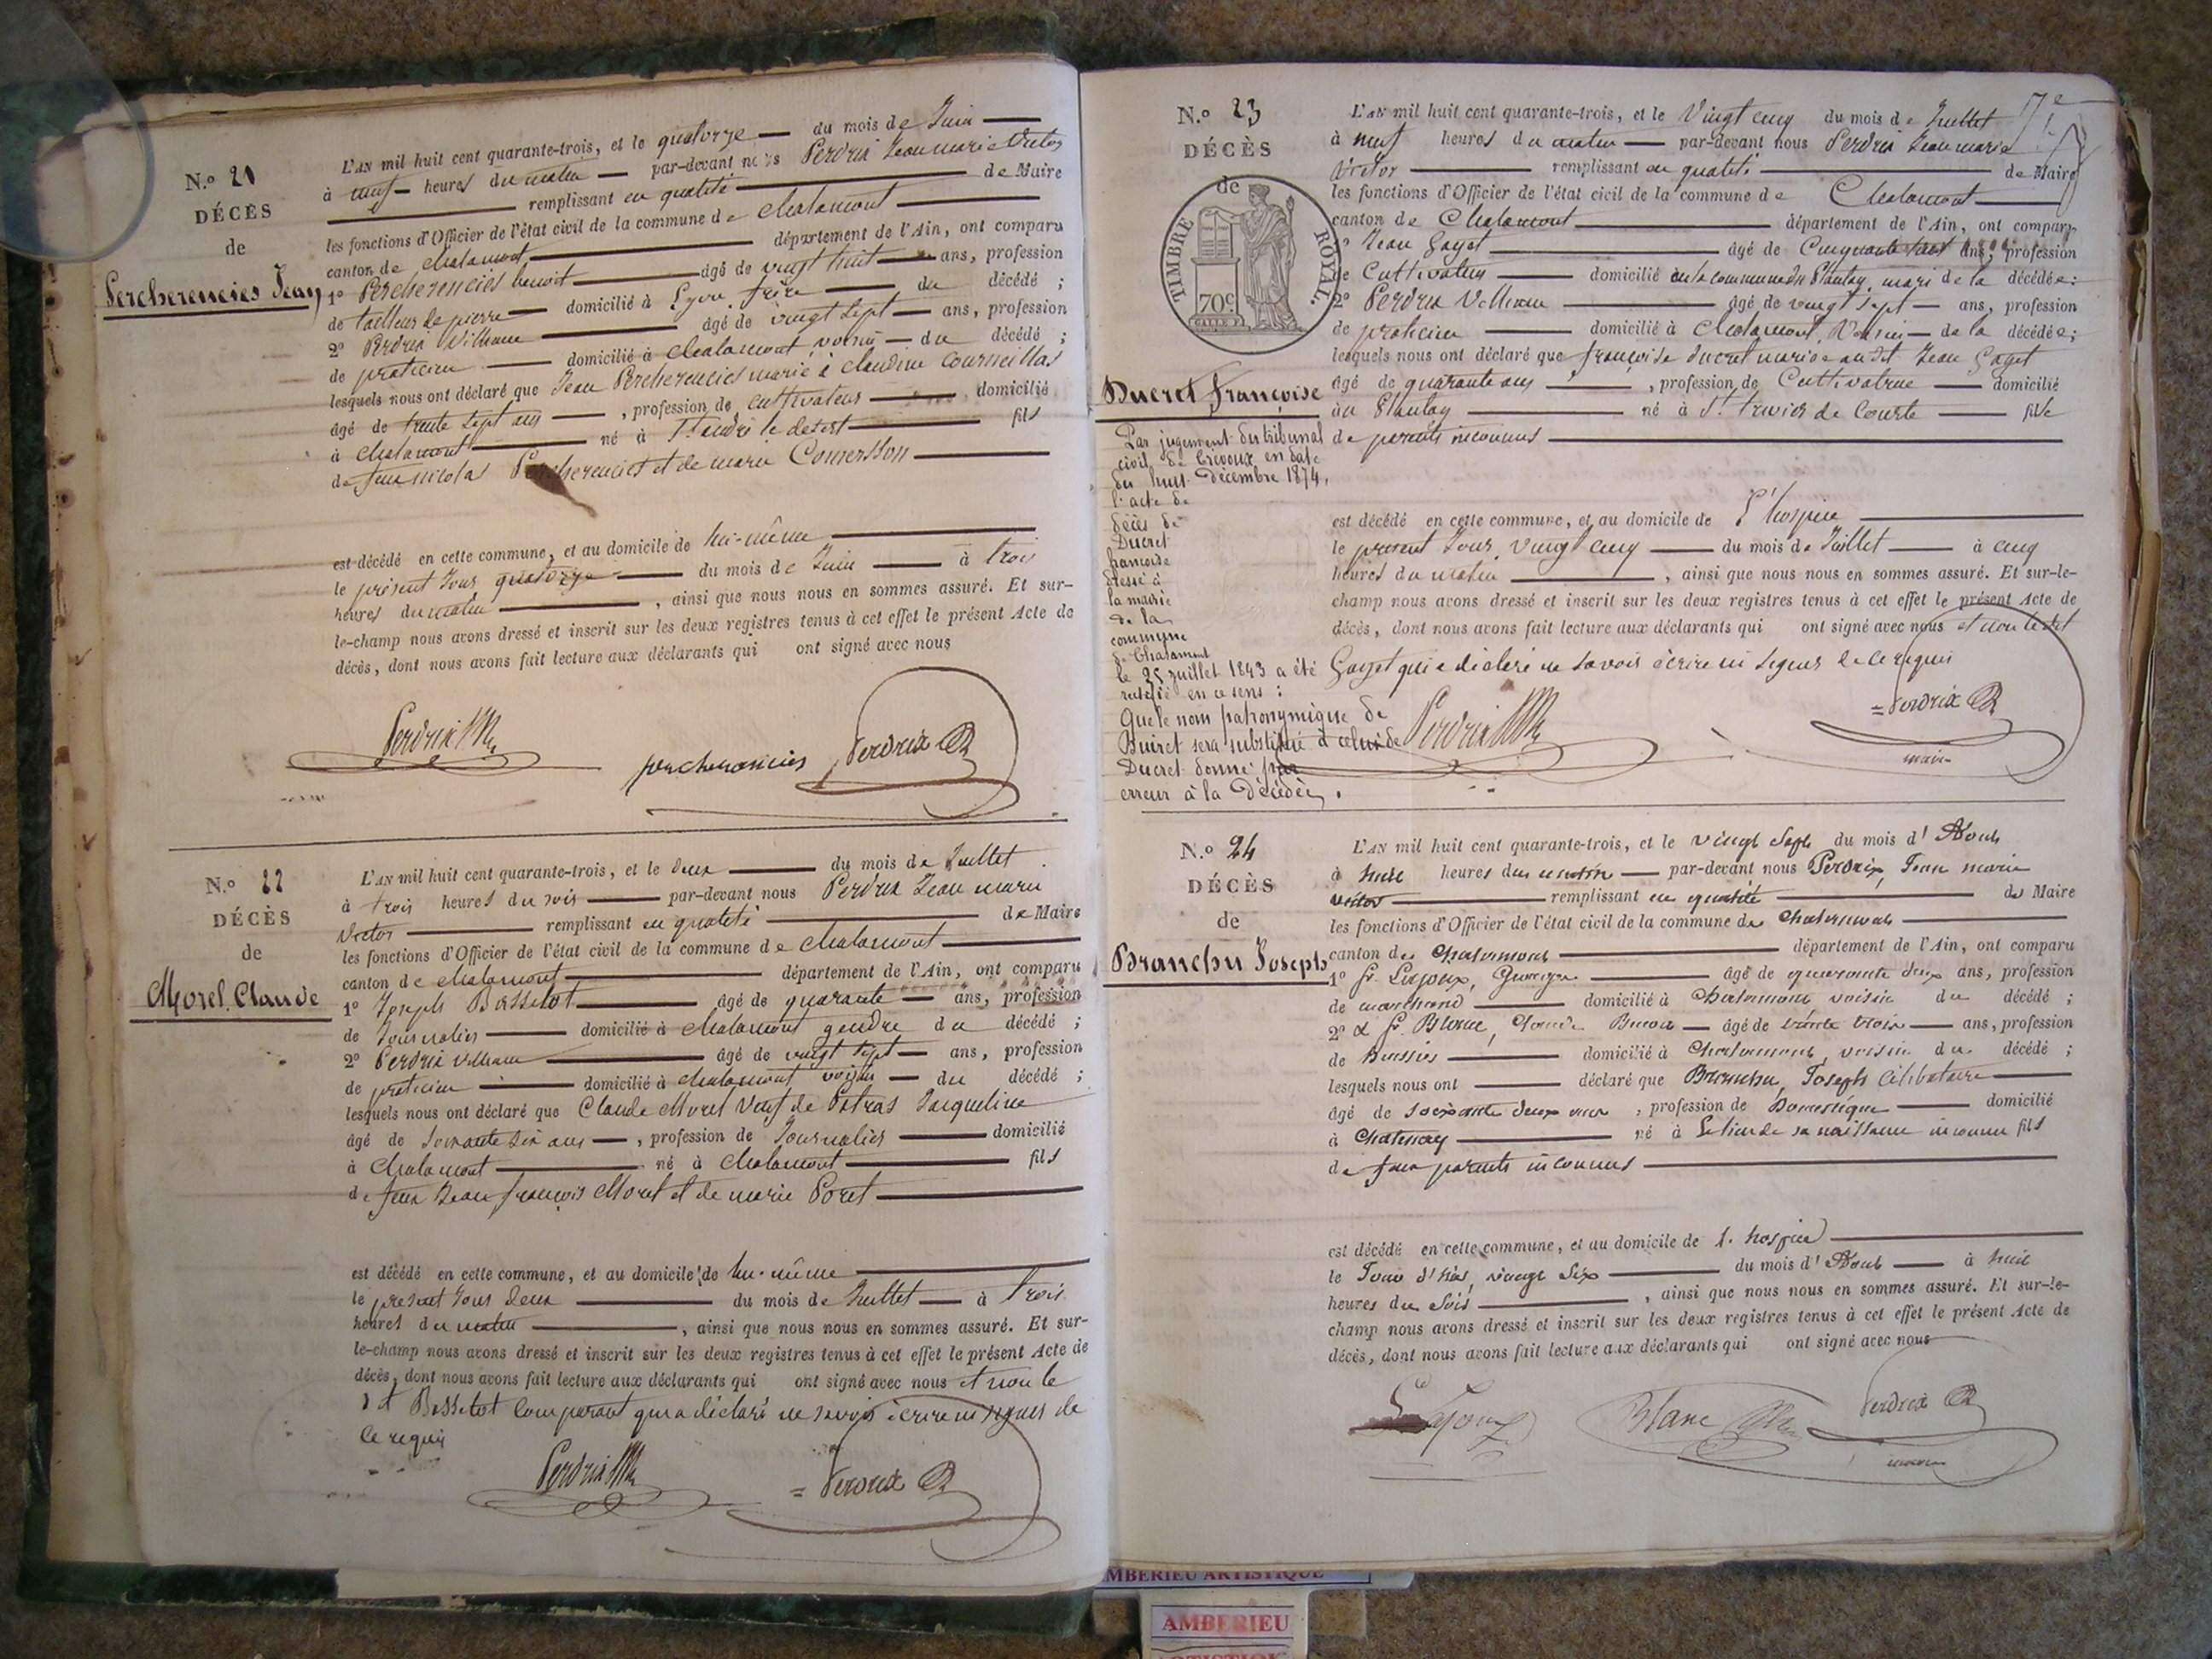 N.o 21
DÉCÈS
de
Percherencies Jean
L'AN mil huit cent quarante-trois, et le quatorze du mois de Juin
à neuf heures du matin par-devant nous Perdrix Jean marie Victor
remplissant en qualité de Maire
les fonctions d'Officier de l'état civil de la commune de Chalamont
canton de Chalamont département de l'Ain, ont comparu
1o Percherencies benoit âgé de vingt huit ans, profession
de tailleur de pierre domicilié à Lyon frère du décédé ;
2o Perdrix Villiaum âgé de vingt sept ans, profession
de praticien domicilié à Chalamont voisin du décédé ;
lesquels nous ont déclaré que Jean Percherencies marié à claudine
âgé de trente sept ans , profession de cultivateur domicilié
à Chalamont né à St andré le desert fils
de feux nicolas Percherencies et de marie
est décédé en cette commune, et au domicile de lui-même
le présent Jour quatorze du mois de Juin à trois
heures du matin , ainsi que nous nous en sommes assuré. Et sur-
le-champ nous avons dressé et inscrit sur les deux registres tenus à cet effet le présent Acte de
décès, dont nous avons fait lecture aux déclarants qui ont signé avec nous
Perdrix
percherencies
Perdrix
N.o 22
DÉCÈS
de
Morel Claude
L'AN mil huit cent quarante-trois, et le deux du mois de Juillet
à trois heures du soir par-devant nous Perdrix Jean marie
Victor remplissant en qualité de Maire
les fonctions d'Officier de l'état civil de la commune de Chalamont
canton de Chalamont département de l'Ain, ont comparu
1o Joseph Bassetot âgé de quarante ans, profession
de Journalier domicilié à Chalamont gendre du décédé ;
2o Perdrix Villiaum âgé de vingt sept ans, profession
de praticien domicilié à Chalamont voisin du décédé ;
lesquels nous ont déclaré que Claude Morel Veuf de Jacqueline
âgé de Soixante Six ans , profession de Journalier domicilié
à Chalamont né à Chalamont fils
de feux Jean françois Morel et de marie Poret
est décédé en cette commune, et au domicile de lui-même
le présent Jour deux du mois de Juillet à trois
heures du matin , ainsi que nous nous en sommes assuré. Et sur-
le-champ nous avons dressé et inscrit sur les deux registres tenus à cet effet le présent Acte de
décès, dont nous avons fait lecture aux déclarants qui ont signé avec nous et non le
dt Bassetot Comparant qui a déclaré ne savoir écrire ni signer de
Ce requis
Perdrix
Perdrix
7e
N.o 23
DÉCÈS
de
TIMBRE ROYAL.
70c.
Ducret françoise
Par jugement du tribunal
civil de Trévoux en date
du huit Décembre 1874,
l'acte de
décès de
Ducret
francoise
dressé à
la mairie
de la
commune
de Chalamont
le 25 juillet 1843 a été
rectifié en ce sens :
Que le nom patronymique de
Buiret sera substitué à celui de
Ducret donné par
erreur à la Décédée.
L'AN mil huit cent quarante-trois, et le Vingt cinq du mois de Juillet
à neuf heures du matin par-devant nous Perdrix Jean marie
Victor remplissant en qualité de Maire
les fonctions d'Officier de l'état civil de la commune de Chalamont
canton de Chalamont département de l'Ain, ont comparu
Jean Gayet âgé de Cinquante trois ans, profession
de Cultivateur domicilié en la commune du Plantay, mari de la décédée :
2o Perdrix Villiaum âgé de vingt sept ans, profession
de praticien domicilié à Chalamont, Voisin de la décédée ;
lesquels nous ont déclaré que françoise Ducret mariée audit Jean Gayet
âgé de quarante ans , profession de Cultivatrice domicilié
au Plantay né à St. trivier de Courte fille
de parents inconnus
est décédé en cette commune, et au domicile de L'hospice
le présent Jour, vingt cinq du mois de Juillet à cinq
heures du matin , ainsi que nous nous en sommes assuré. Et sur-le-
champ nous avons dressé et inscrit sur les deux registres tenus à cet effet le présent Acte de
décès, dont nous avons fait lecture aux déclarants qui ont signé avec nous et non ledit
Gayet qui a déclaré ne savoir écrire ni signer de ce requis
Perdrix
Perdrix
maire
N.o 24
DÉCÈS
de
Branchu Joseph
L'AN mil huit cent quarante-trois, et le vingt Sept du mois d'Aout
à huit heures du matin par-devant nous Perdrix, Jean marie
victor remplissant en qualité de Maire
les fonctions d'Officier de l'état civil de la commune de Chalamont
canton de Chalamont département de l'Ain, ont comparu
1o Sr. Lajoux, âgé de quarante deux ans, profession
de marchand domicilié à Chalamont voisin du décédé ;
2o & Sr. Blanc, Claude âgé de trente trois ans, profession
de domicilié à Chalamont, voisin du décédé ;
lesquels nous ont déclaré que Branchu, Joseph Célibataire
âgé de soixante deux ans , profession de Domestique domicilié
à Chatenay né à Le lieu de sa naissance inconnu fils
de feux parents inconnus
est décédé en cette commune, et au domicile de l'hospice
le Jour d'hier, vingt Six du mois d'Aout à huit
heures du Soir , ainsi que nous nous en sommes assuré. Et sur-le-
champ nous avons dressé et inscrit sur les deux registres tenus à cet effet le présent Acte de
décès, dont nous avons fait lecture aux déclarants qui ont signé avec nous
Lajoux
Blanc
Perdrix
maire
AMBERIEU ARTISTIQUE
AMBERIEU